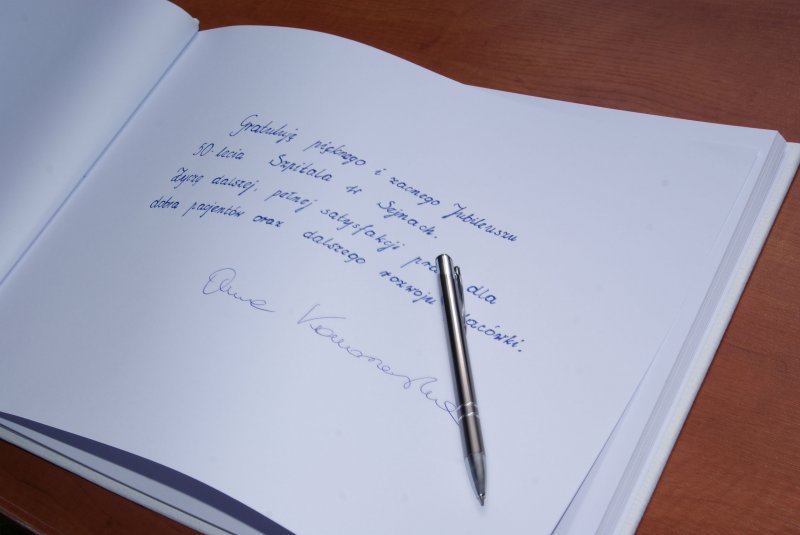 Gratuluję pięknego i zacnego Jubileuszu
50-lecia Szpitala w Sejnach.
Życzę dalszej, pełnej satysfakcji dla
dobra pacjentów oraz dalszego rozwoju